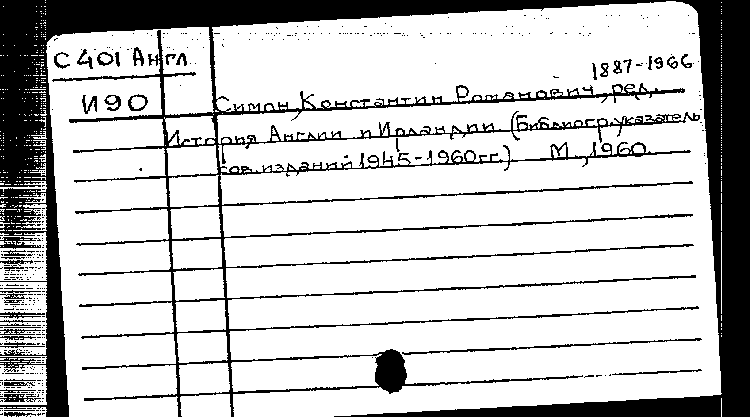 С 401 Англ
1887-1966
И90 Симон, Константин Романович, ред.
История Англии и Ирландии (Библиогр. указатель
сов. изданий 1945-1960гг.) М., 1960